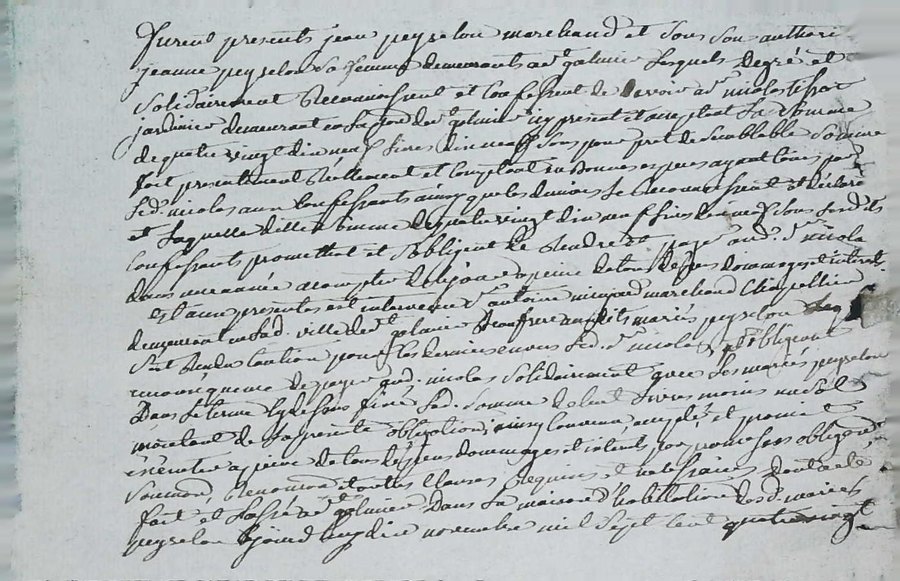 furent presents jean peyselon marchand et sous son authori
jeanne peyselon sa femme demeurants a st galmier lesquels de gré et
solidairement reconnoissent et confessent de devoir a sr nicolas
jardinier demeurant en la de st galmier icy present et acceptant la somme
de quatre vingt dix neuf livres dix neuf sous pour pret de semblable somme
fait presentement réellement et comptant en bonnes especes ayant cours par
led. nicolas aux confessants ainsy que les derniers le reconnoissent et déclare
et laquelle ditte somme de quatre vingt dix neuf livres dix neuf sous lesdits
confessants promettent et s'obligent de rendre et payer aud. sr nicola
dans une année a compter de ce jour a peine de tous depens dommages et interets
est aux presentes est intervenu sr antoine marchand chapellier
demeurant en lad. ville de st galmier beaufrere auxdits mariés peyselon
s'est rendu caution pour les derniers envers led. sr nicolas s'obligeant
en conséquence de payer aud. nicolas solidairement avec les mariés peyselon
dans le terme cy dessus fixé lad. somme de cent livres moins un sol
montant de la presente obligation, ainsy convenu, accepté, et promit
exécuter a peine de tous dépens dommages et interets par
soumond, renonceond et outres clauses requises et necessaires dont acte
fait et passé a st galmier dans la maison d'habitation desd. mariés
peyselon ce jourd'huy dix novembre mil sept cent quatre vingt